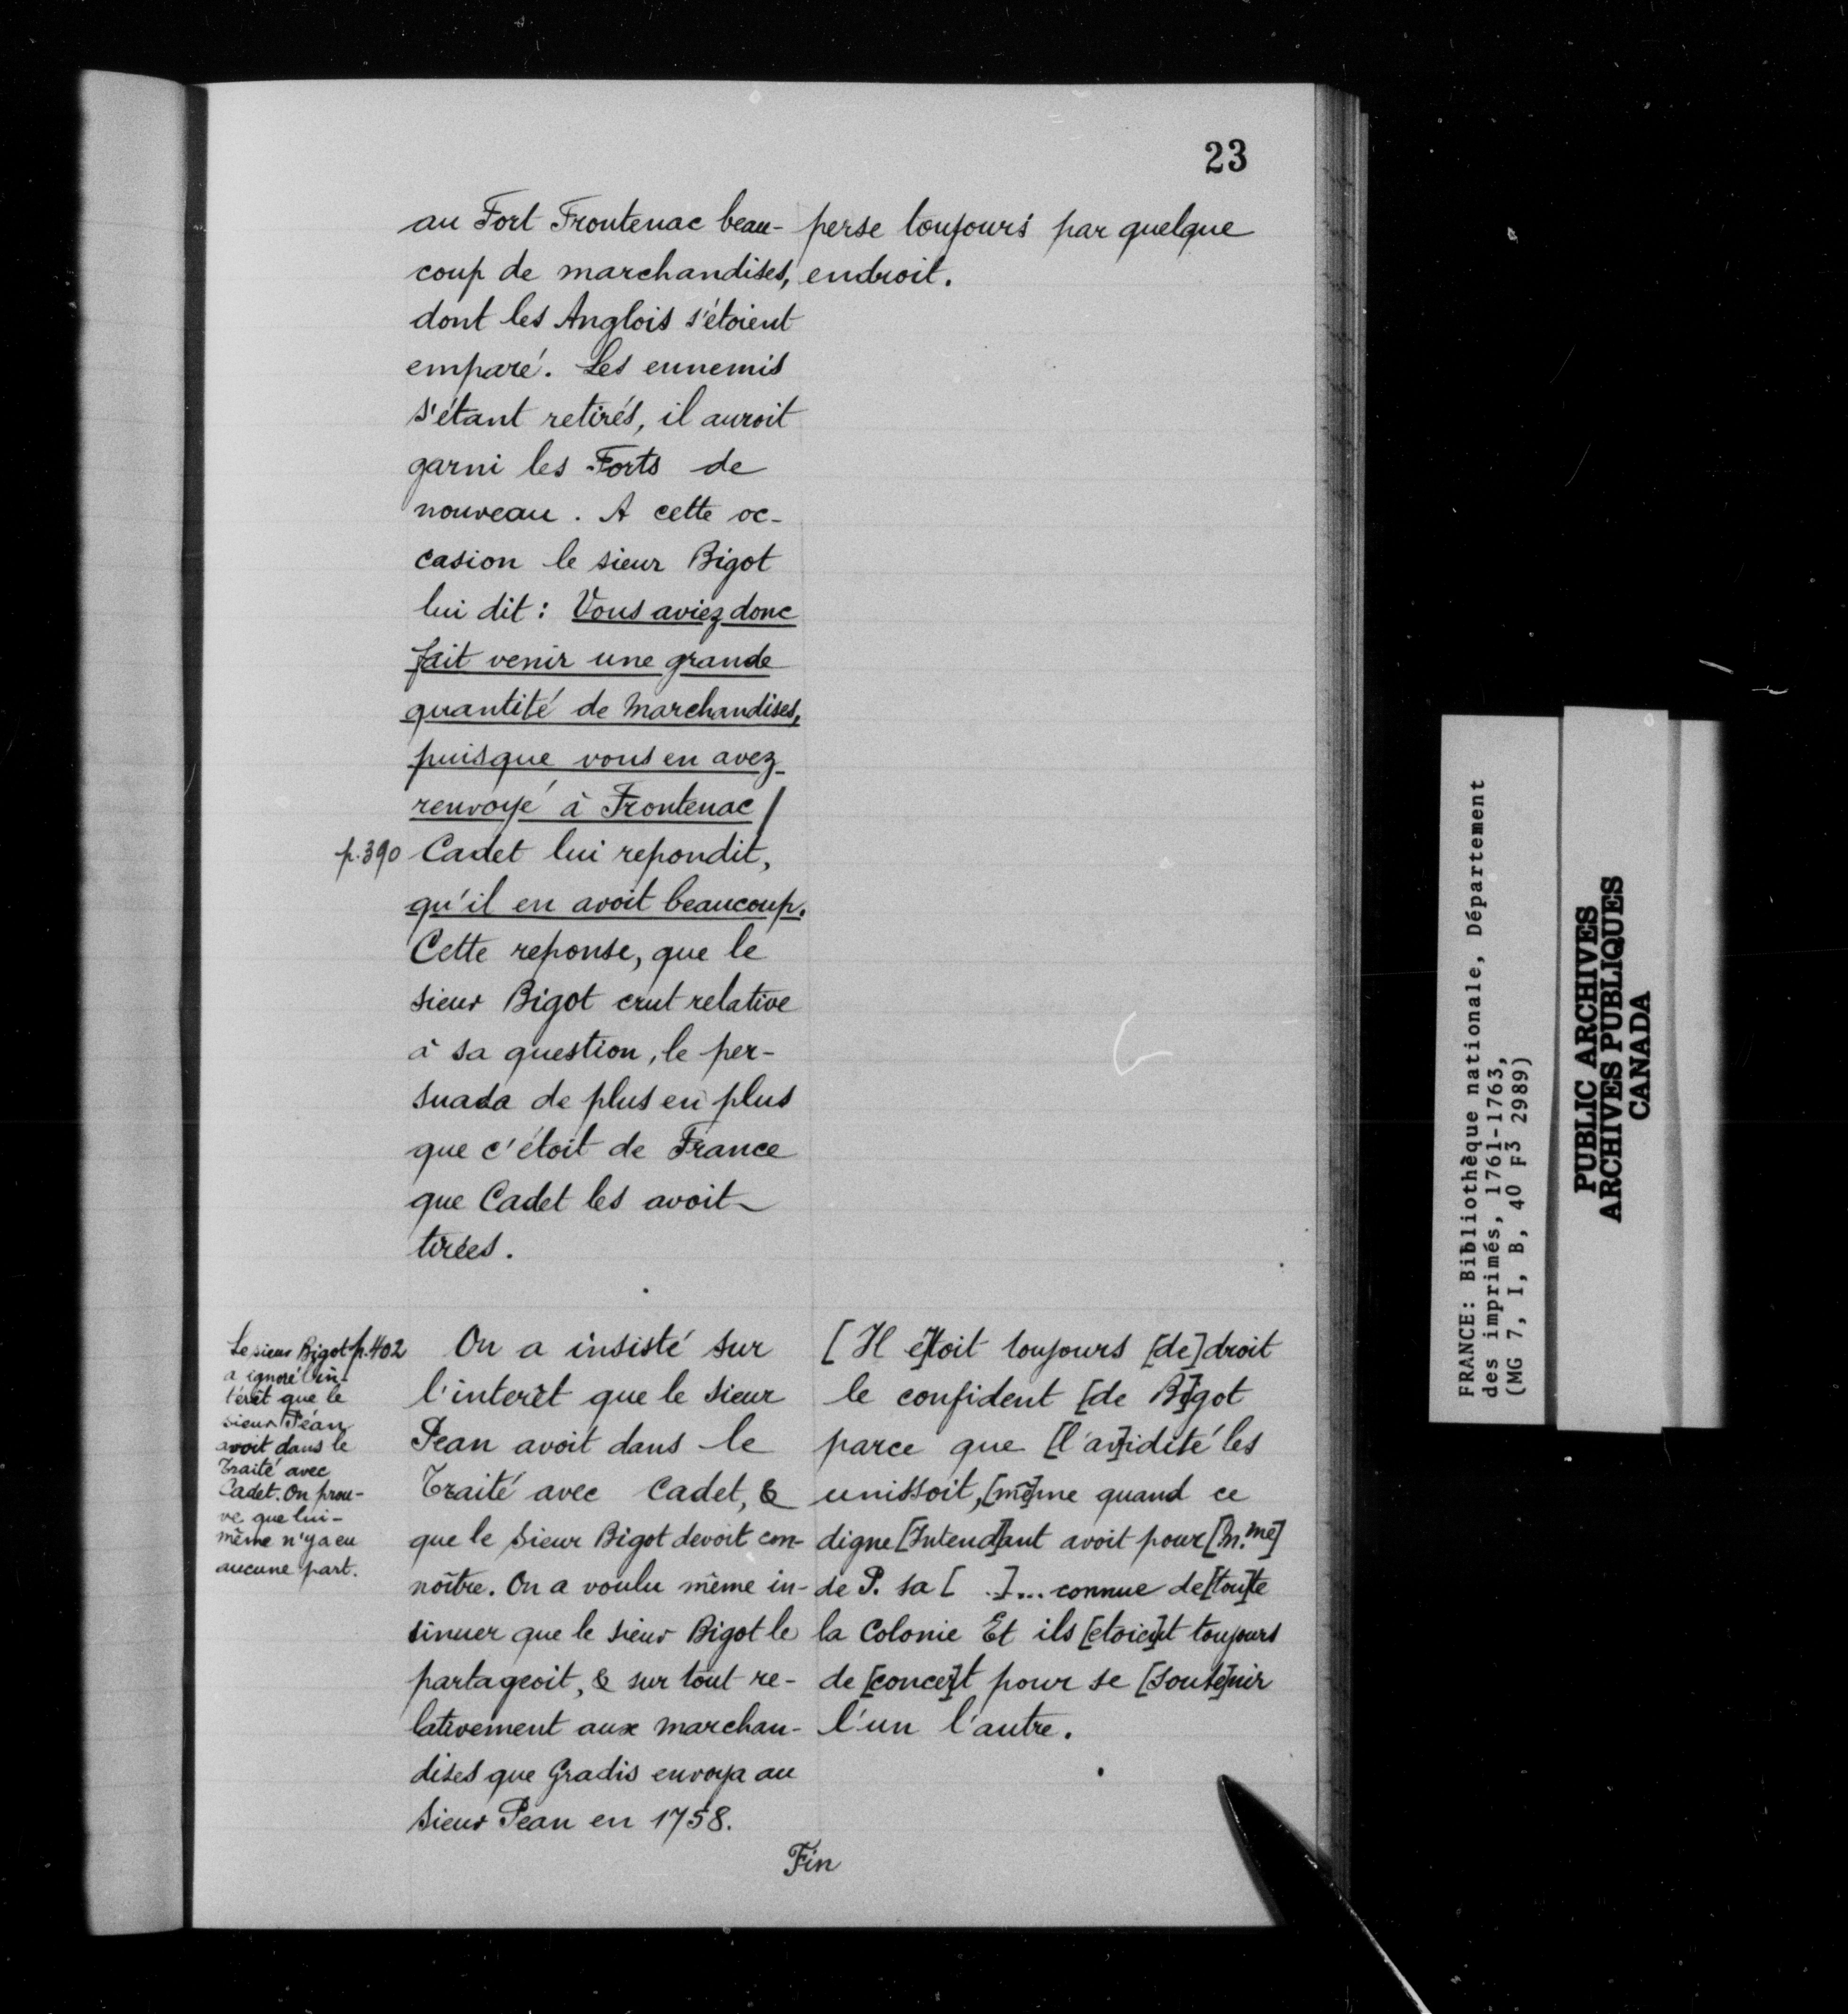 23
au Fort Frontenac beau-
coup de marchandises,
dont les Anglois s'étoient
emparé. Les ennemis
s'étant retirés, il auroit
garni les Forts de
nouveau. A cette oc-
casion le sieur Bigot
lui dit : Vous aviez donc
fait venir une grande
quantité de Marchandises,
puisque vous en avez
renvoyé à Frontenac /
p.390 Cadet lui repondit,
qu'il en avoit beaucoup.
Cette reponse, que le
sieur Bigot crut relative
à sa question, le per-
suada de plus en plus
que c'étoit de France
que Cadet les avoit
tirées.
perse toujours par quelque
endroit.
Le sieur Bigot
a ignoré l'in-
térêt que le
sieur Péan
avoit dans le
Traité avec
Cadet. On prou-
ve que lui-
même n'y a eu
aucune part.
p.402 On a insisté sur
l'interêt que le sieur
Pean avoit dans le
Traité avec Cadet, &
que le sieur Bigot devoit con-
noître. On a voulu même in-
sinuer que le sieur Bigot le
partageoit, & sur tout re-
lativement aux marchan-
dises que Gradis envoya au
sieur Pean en 1758.
[Il é]toit toujours [de] droit
le confident [de Bi]got
parce que [l'av]idité les
unissoit, [mê]me quand ce
digne [Intend]ant avoit pour [M.me]
de P. sa [ .]... connue de [tou]te
la Colonie Et ils [etoien]t toujours
de [concer]t pour se [soute]nir
l'un l'autre.
Fin
FRANCE: Bibliothèque nationale, Département
des imprimés, 1761-1763,
(MG 7, I, B, 40 F3 2989)
PUBLIC ARCHIVES
ARCHIVES PUBLIQUES
CANADA